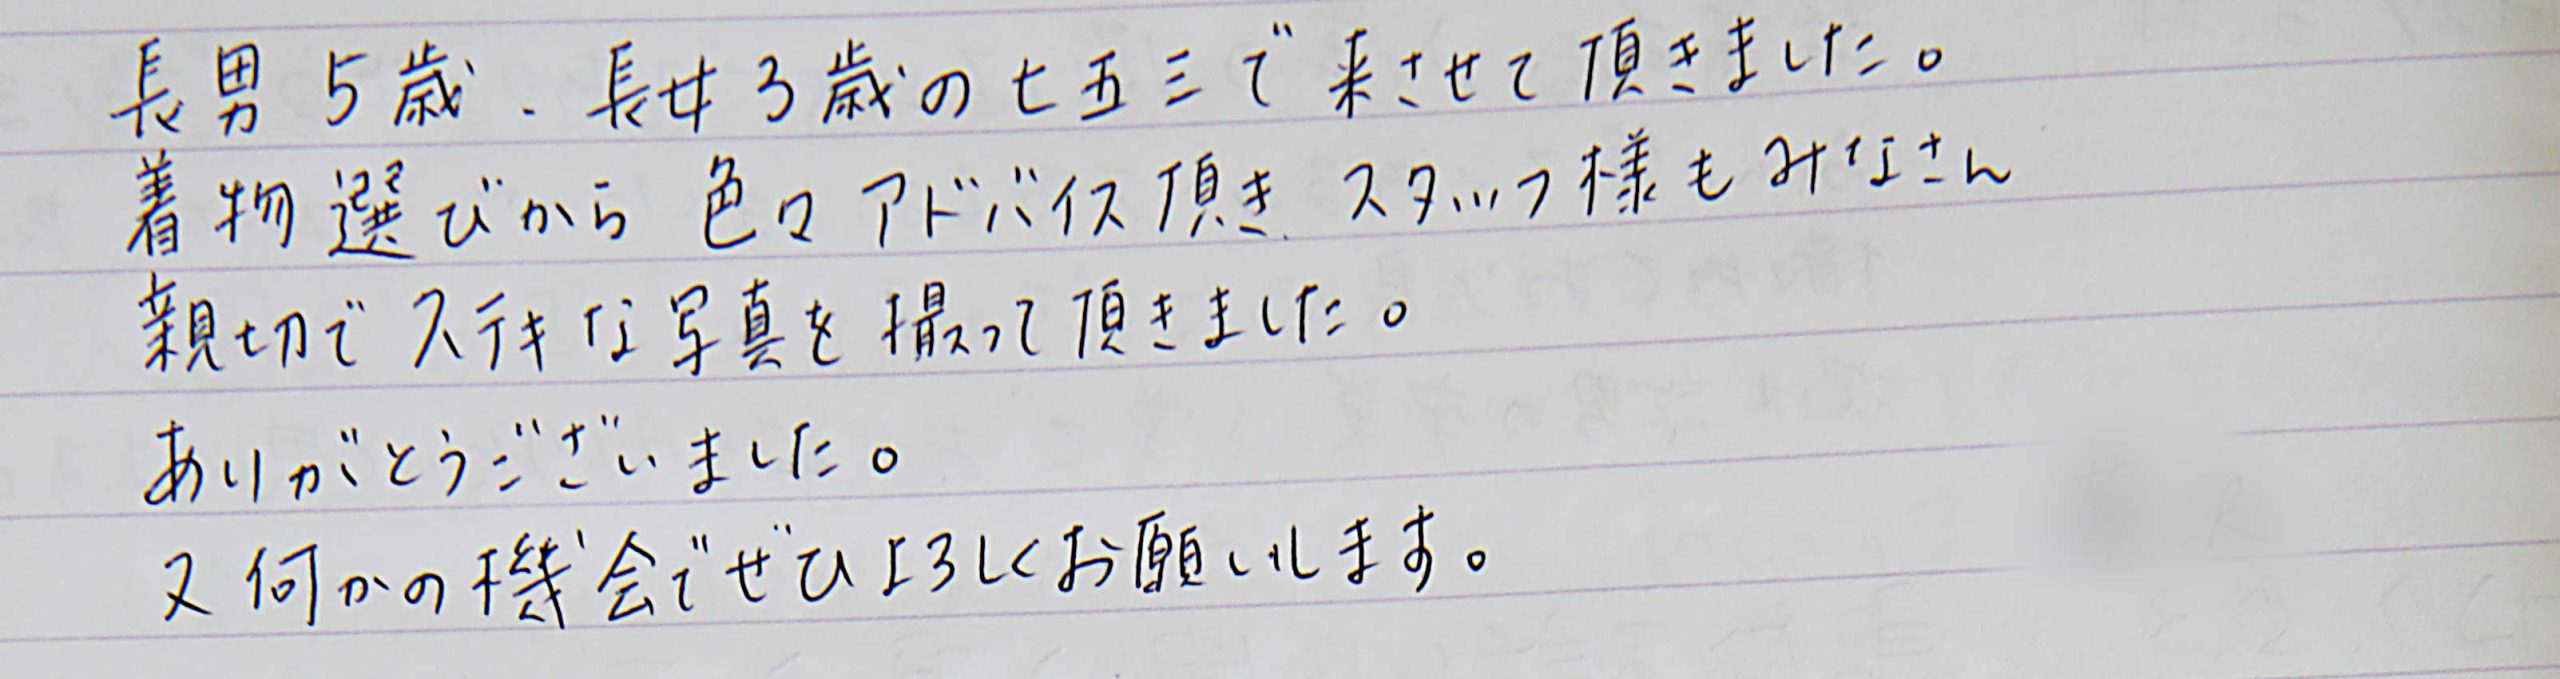 長男5歳、長女3歳の七五三で来させて頂きました。
着物選びから色々アドバイス頂き、スタッフ様もみなさん
親切でステキな写真を撮って頂きました。
ありがとうございました。
又何かの機会でぜひよろしくお願いします。